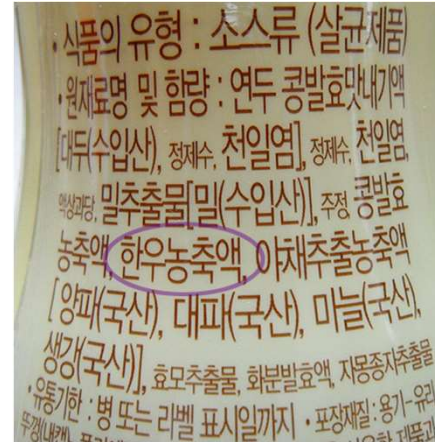 ·식품의 유형 : 소스류 (살균제품)
·원재료명 및 함량 : 연두 콩발효맛내기액
[대두(수입산), 정제수, 천일염], 정제수, 천일염,
액상과당, 밀추출물[밀(수입산)], 주정 콩발효
농축액, 한우농축액, 야채추출농축액
[양파(국산), 대파(국산), 마늘(국산),
생강(국산)], 효모추출물, 화분발효액, 자몽종자추출물
·유통기한 : 병 또는 라벨 표시일까지 ·포장재질 : 용기-유리